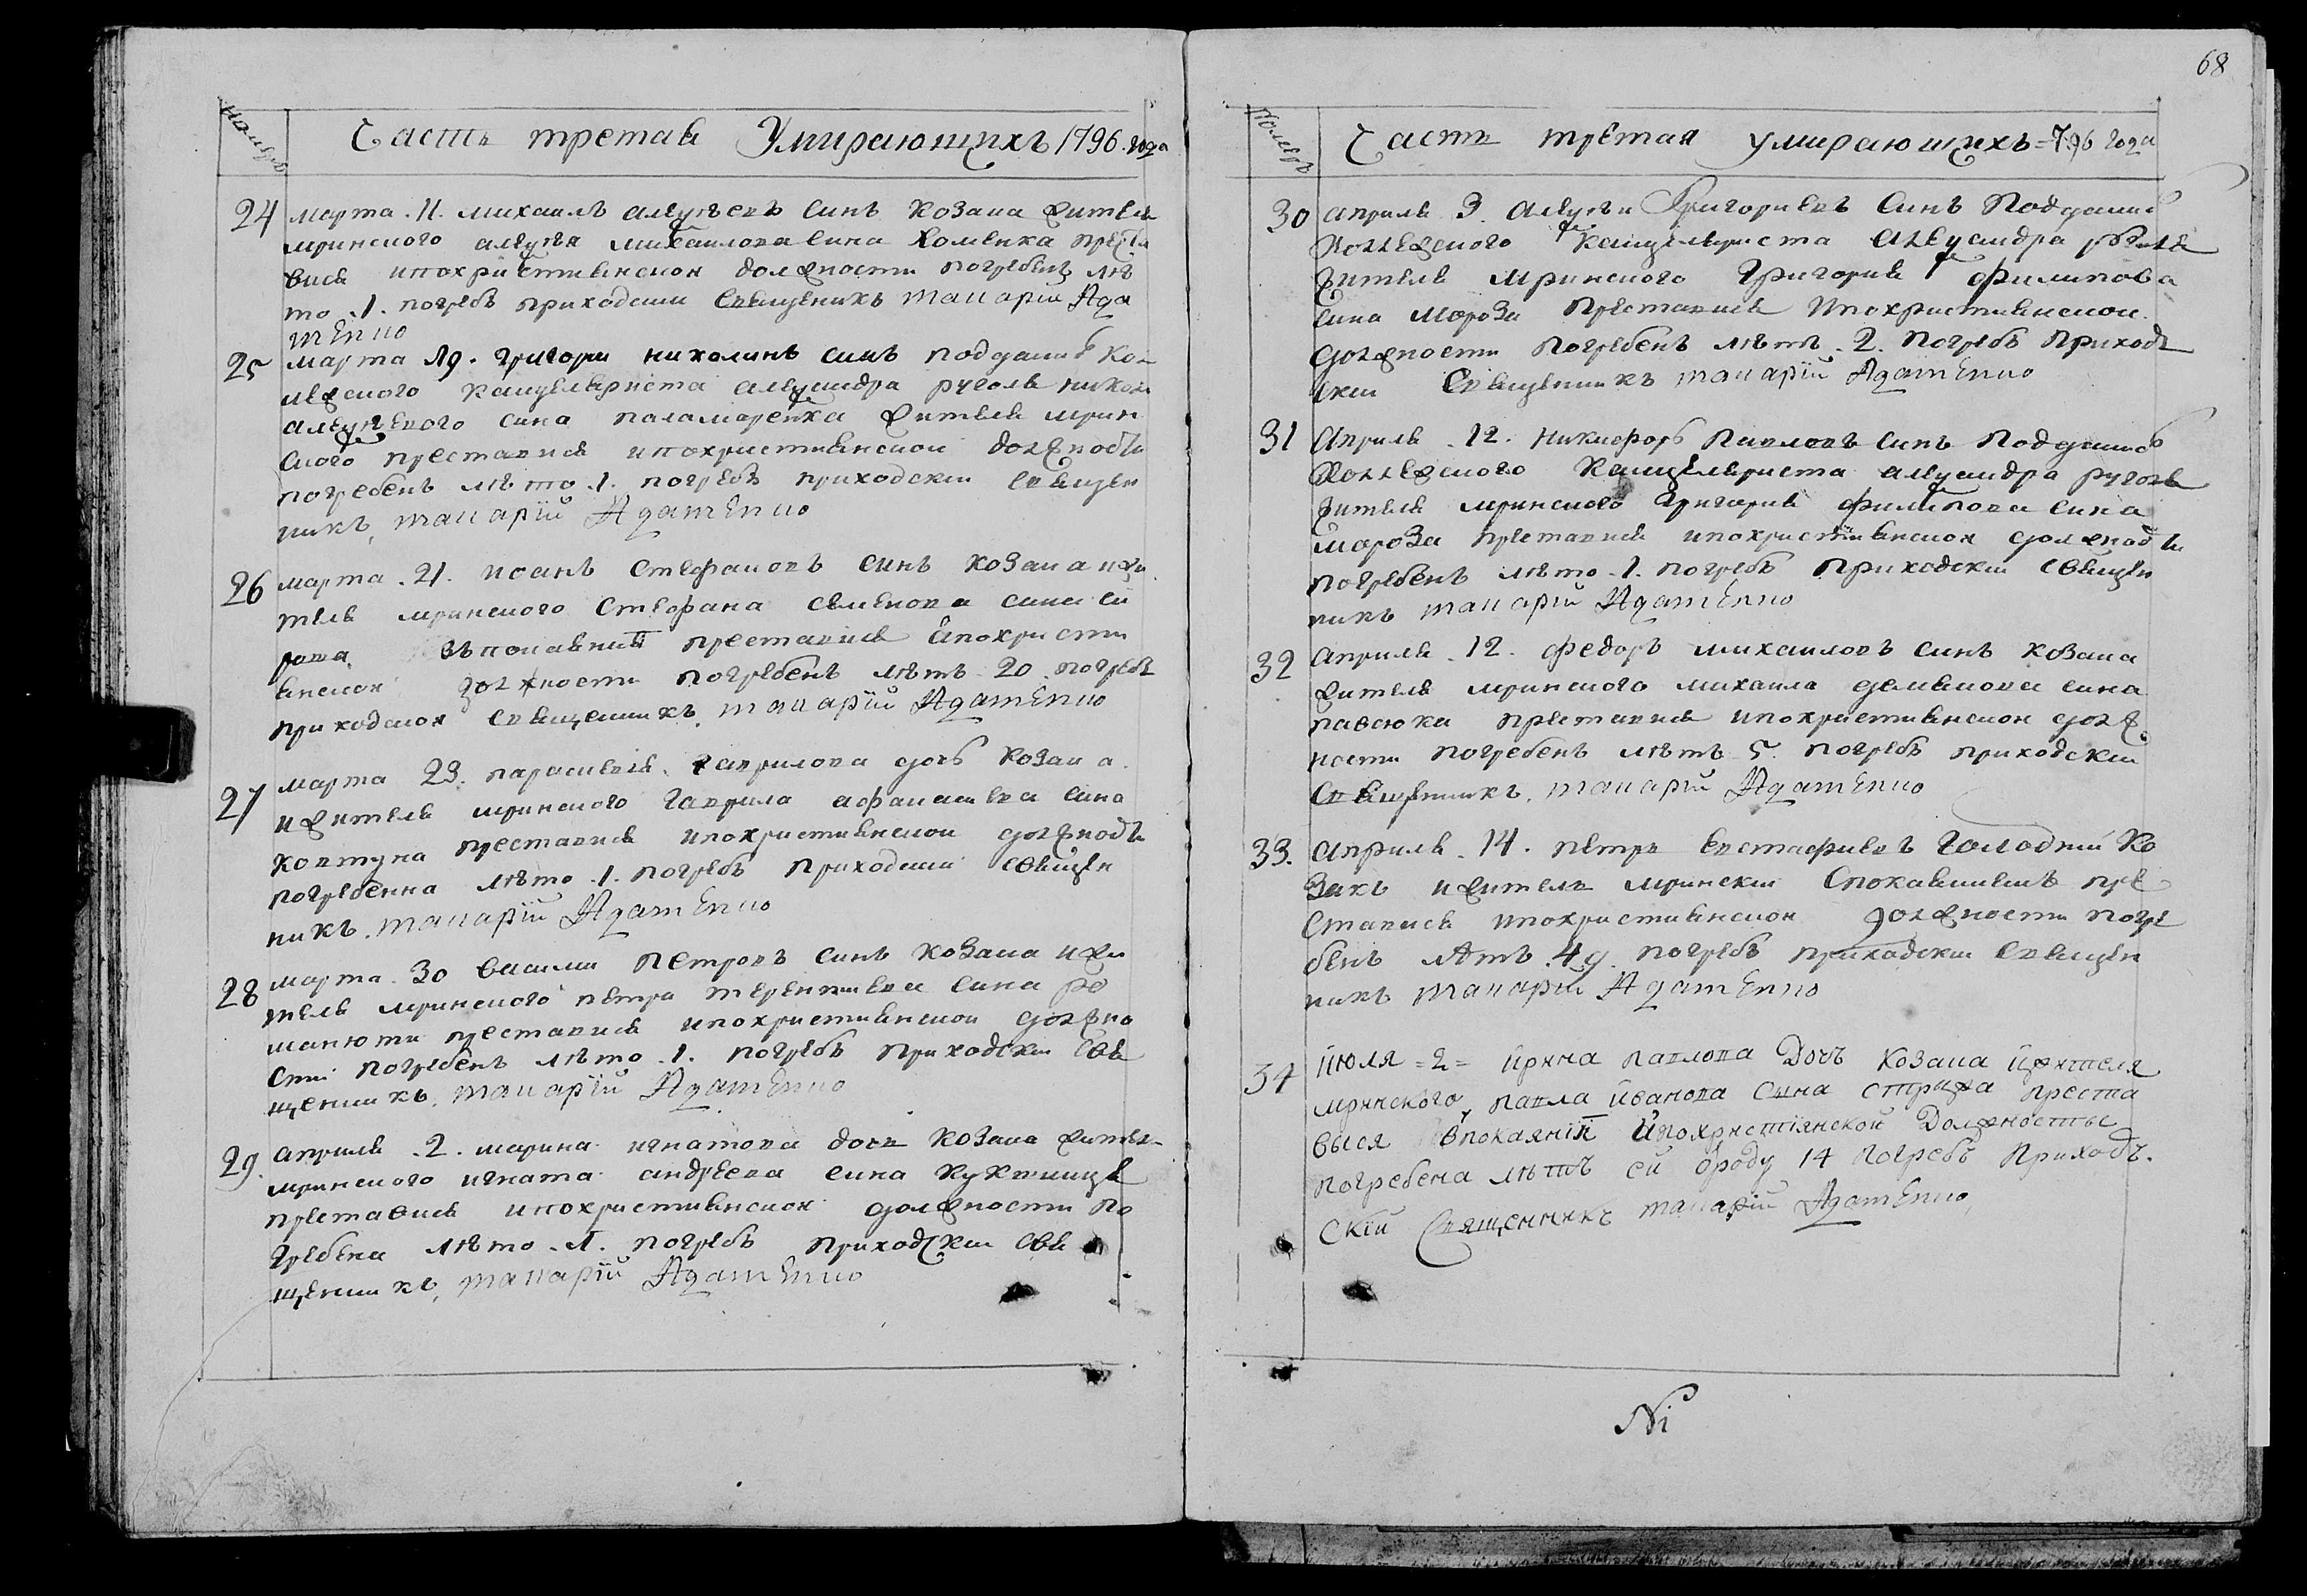 68
Номеръ
Часть третая Умирающихъ 1796 года
24 марта 11. михаилъ алеѯѣевъ синъ козака жителя
мринского алеѯѣя михаилова сина хоменка преста
вися ипохристиянской должности погребенъ лѣ
то 1. погребъ приходский священикъ макарій Ада
менко
25 марта 19. григори николинъ синъ подданий ко
лежского канцеляриста алеѯандра руголя николи
алеѯѣевого сина паламаренка жителя мрин
ского преставися ипохристиянской должности
погребенъ лѣто 1. погребъ приходский священ
никъ макарій Адаменко
26 марта 21. иоанъ стефановъ синъ козака ижи
теля мринского стефана семенова сина
въпокаянии преставися ипохристи
янской должности погребенъ лѣтъ 20 погребъ
приходской священикъ макарій Адаменко
27 марта 23. параскевія гаврилова дочь козака
ижителя мринского гаврила афанасиева сина
ковтуна преставися ипохристиянской должности
погребенна лѣто 1. погребъ приходский священ
никъ макарій Адаменко
28 марта 30 василий петровъ синъ козака ижи
теля мринского петра терентиева сина ро
манюти преставися ипохристиянской должно
сти погребенъ лѣто 1. погребъ приходский свя
щеникъ макарій Адаменко
29. априля 2. марина игнатова дочь козака жителя
мринского игната андреева сина
преставися ипохристиянской должности по
гребена лѣто 1. погребъ приходский свя
щеникъ макарій Адаменко
Номеръ
Часть третая умирающихъ 796 года
30 априля 3. алеѯѣи Григориевъ синъ подданий
коллежского канцеляриста алеѯандра
жителя мринского григория филипова
сина мороза преставися ипохристиянской
должности погребенъ лѣтъ 2. погребъ приход
ский священикъ макарій Адаменко
31 априля 12. никифоръ павловъ синъ подданий
коллежского канцеляриста алеѯандра руголя
жителя мринского григория филипова сина
мороза преставися ипохристиянской должности
погребенъ лѣто 1. погребъ приходский священ
никъ макарій Адаменко
32 априля 12. федоръ михаиловъ синъ козака
жителя мринского михаила демянова сина
павсюка преставися ипохристиянской долж
ности погребенъ лѣтъ 5 погребъ приходский
священникъ макарій Адаменко
33. априля 14. петръ евстафиевъ голодний ко
закъ ижитель мринский спокаяниемъ пре
ставися ипохристиянской должности погре
бенъ лѣтъ 49 погребъ приходский священ
никъ макарій Адаменко
34 июля =2= ирина павлова Дочъ козака ижителя
мринского павла иванова сина стрижа преста
выся впокаяніи ипохристіянской Должносты
погребена лѣтъ ей ѿроду 14 погребъ приход
скій Священникъ макарій Адаменко
Ni